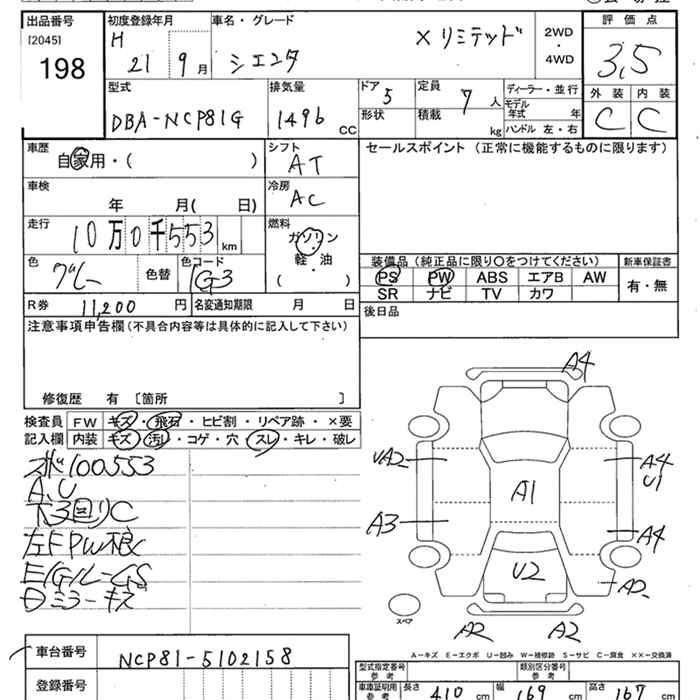 出品番号 初度登録年月 車名・グレード 評価点
[2045] H 2WD
198 21 9月 シエンタ X リミテッド ・ 3,5
4WD
型式 排気量 ドア 5 定員 7人 ディーラー・並行 外装 内装
DBA-NCP81G 1496 CC 形状 積載 kg モデル年式 年 C C
ハンドル 左・右
車歴 シフト セールスポイント (正常に機能するものに限ります)
自家用・( ) AT
車検 冷房
年 月( 日) AC
走行 燃料
10万0千553 km ガソリン
軽・油
色 色コード ( )
グレー 色替 1G3
装備品 (純正品に限り○をつけてください) 新車保証書
PS PW ABS エアB AW 有・無
SR ナビ TV カワ
R券 11,200円 名変通知期限 月 日 後日品
注意事項申告欄(不具合内容等は具体的に記入して下さい)
修復歴 有 〔箇所 〕
検査員 FW キズ・飛石・ヒビ割・リペア跡・×要
記入欄 内装 キズ・汚れ・コゲ・穴・スレ・キレ・破レ
100553
A.U
下3回りC
左FPW
E/G/L-GS
ミラーキズ
A4
UA2 A4
U1
A1
A3 A4
U2 A2
スペア
A2 A2
A-キズ E-エクボ U-凹み W-補修跡 S-サビ C-腐食 ××-交換済
車台番号 NCP81-5102158
型式指定番号 参考 類別区分番号 参考
登録番号
車庫証明用 参考 長さ 410 cm 幅 169 cm 高さ 167 cm